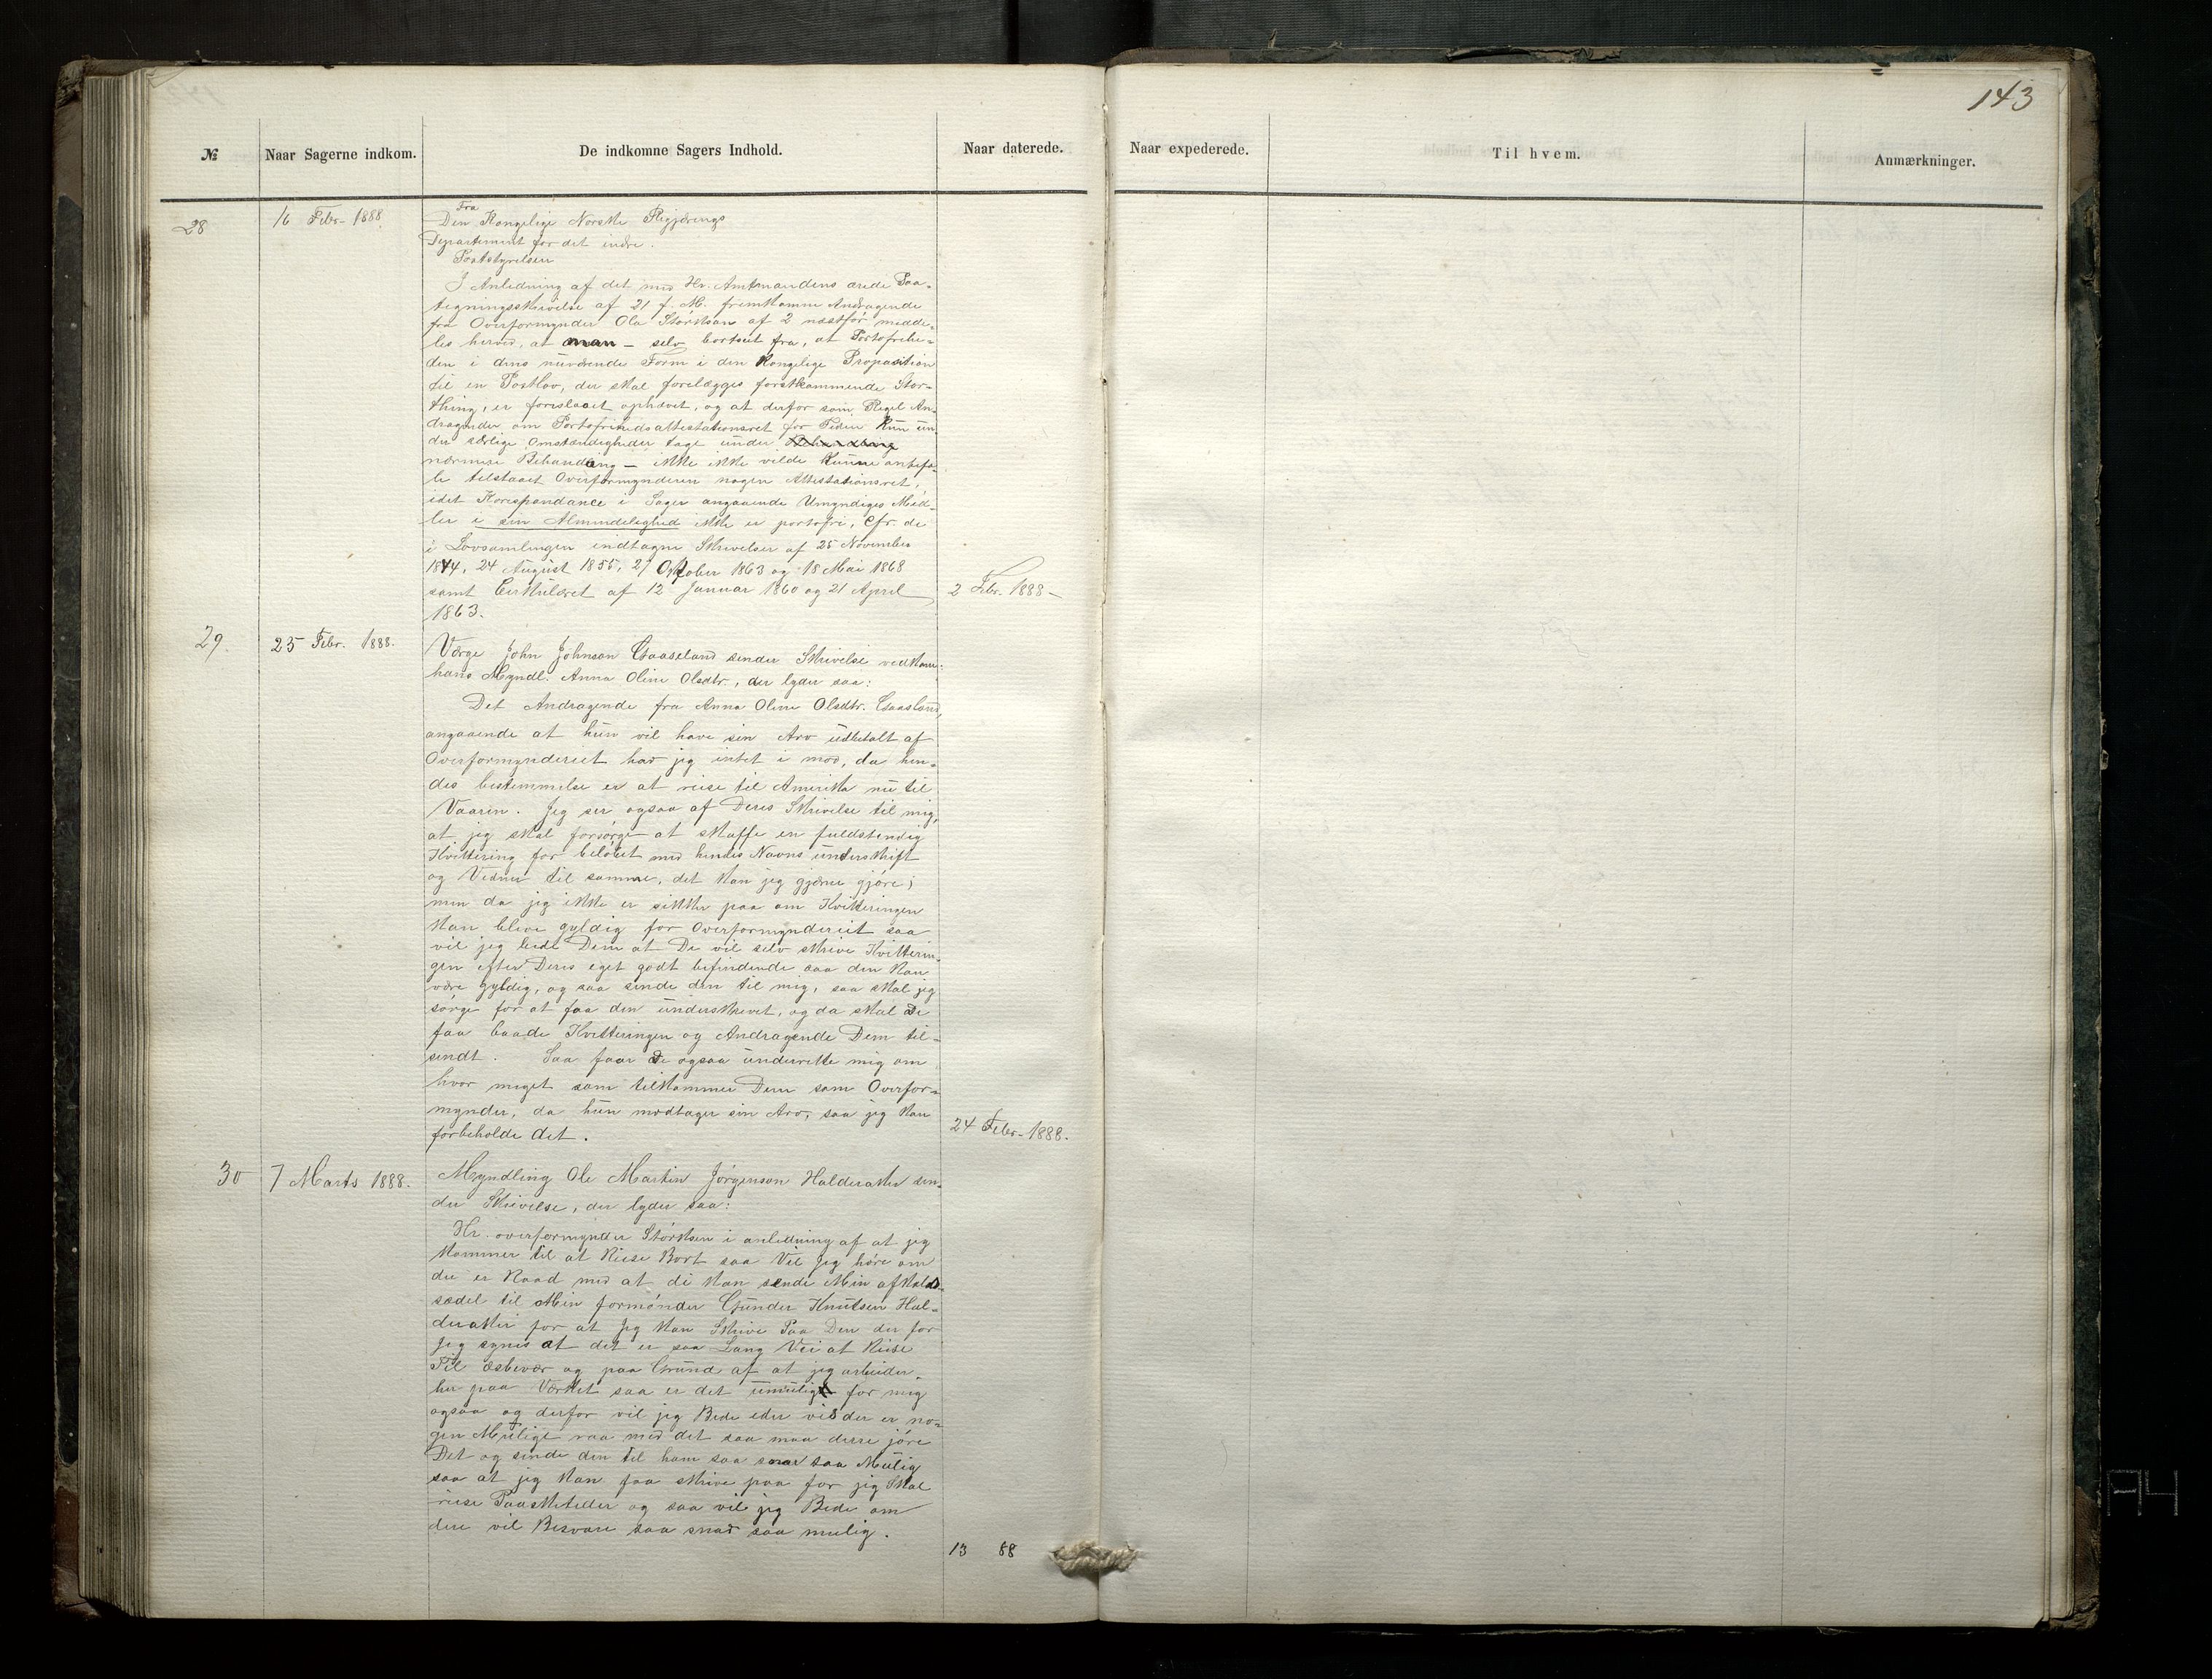 143
№ Naar Sagerne indkom. De indkomne Sagers Indhold. Naar daterede. Naar expederede. Til hvem. Anmærkninger.
28 16 Febr. 1888 Fra
Den Kongelige Norske Regjærings
Departement for det indre.
Poststyrelsen
I Anledning af det med Hr. Amtmandens ærede Paa-
tegningsskrivelse af 21 f. M. fremkomne Andragende
fra Overformynder Ola Störksen af 2 næstfør medde-
les herved, at man - selv bortseet fra, at Portofrihe-
den i dens nuværende Form i den Kongelige Proposition
til en Postlov, der skal forelægges førstkommende Stor-
thing, er foreslaaet ophævet, og at derfor som Regel An-
dragender om Portofriheds attestationsret for Tiden kun ün-
der særlige Omstændigheder tage ünder Behandling
nærmere Behandling - ikke ikke vilde kunne anbefa-
le tilstaaet Overformynderen nogen Attestationsret,
idet Korespondance i Sager angaaende Umyndiges Mid-
ler i sin Almindelighed ikke er portofri, Cfr. de
i Lovsamlingen indtagne Skrivelser af 25 November
1844, 24 August 1855, 27 Oktober 1863 og 18 Mai 1868
samt Cirkulæret af 12 Januar 1860 og 21 April 2 Febr. 1888 -
1863.
29. 25 Febr. 1888. Værge John Johnson Gaaseland sender Skrivelse vedkom:
hans Myndl. Anna Oline Olsdtr., der lyder saa:
Det Andragende fra Anna Oline Olsdtr. Gaasland,
angaaende at hün vil have sin Arv üdbetalt af
Overformynderiet har jeg intet i mod, da hen-
des bestemmelse er at reise til Amerika nü til
Vaaren. Jeg ser ogsaa af Deres Skrivelse til mig,
at jeg skal forsørge at skaffe en fuldstendig
Kvittering for beløbet med hendes Navns ünderskrift
og Vedner til samme, det kan jeg gjærne gjøre;
men da jeg ikke er sikker paa om Kvitteringen
kan blive gyldig for Overformynderiet saa
vil jeg bede Dem at De vil selv skrive Kvitterin-
gen efter Deres eget godt befindende saa den kan
være gyldig, og saa sende den til mig, saa skal jeg
sørge for at faa den ünderskrevet, og da skal De
faa baade Kvitteringen og Andragende Dem til-
sendt. Saa faar De ogsaa ünderrette mig om
hvor meget som tilkommer Dem som Overfor-
mynder, da hün modtager sin Arv, saa jeg kan
forbeholde det. 24 Febr. 1888.
30 7 Marts 1888. Myndling Ole Martin Jørgenson Halderaker sen-
der Skrivelse, der lyder saa:
Hr. overformynder Störksen i anledning af at jeg
kommer til at Reise Bort saa Vil Jeg høre om
der er Raad med at di kan sende Min afkalds-
sædel til Min formönder Gunder Knutsen Hal-
deraker for at Jeg kan Skrive Paa Den der for
Jeg synes at det er saa Lang Vei at Reise
Til æsbevær og paa Grund af at jeg arbeider
her paa Værket saa er det umuligt for mig
ogsaa og derfor vil jeg Bede eder vis der er no-
gen Muligt raa med det saa maa dere jöre
Det og sende den til ham saa snar saa Mülig
saa at jeg kan faa skrive paa for jeg Skal
reise Paasketider og saa vil jeg Bede om
dere vil Besvare saa snar saa mulig.
13 88